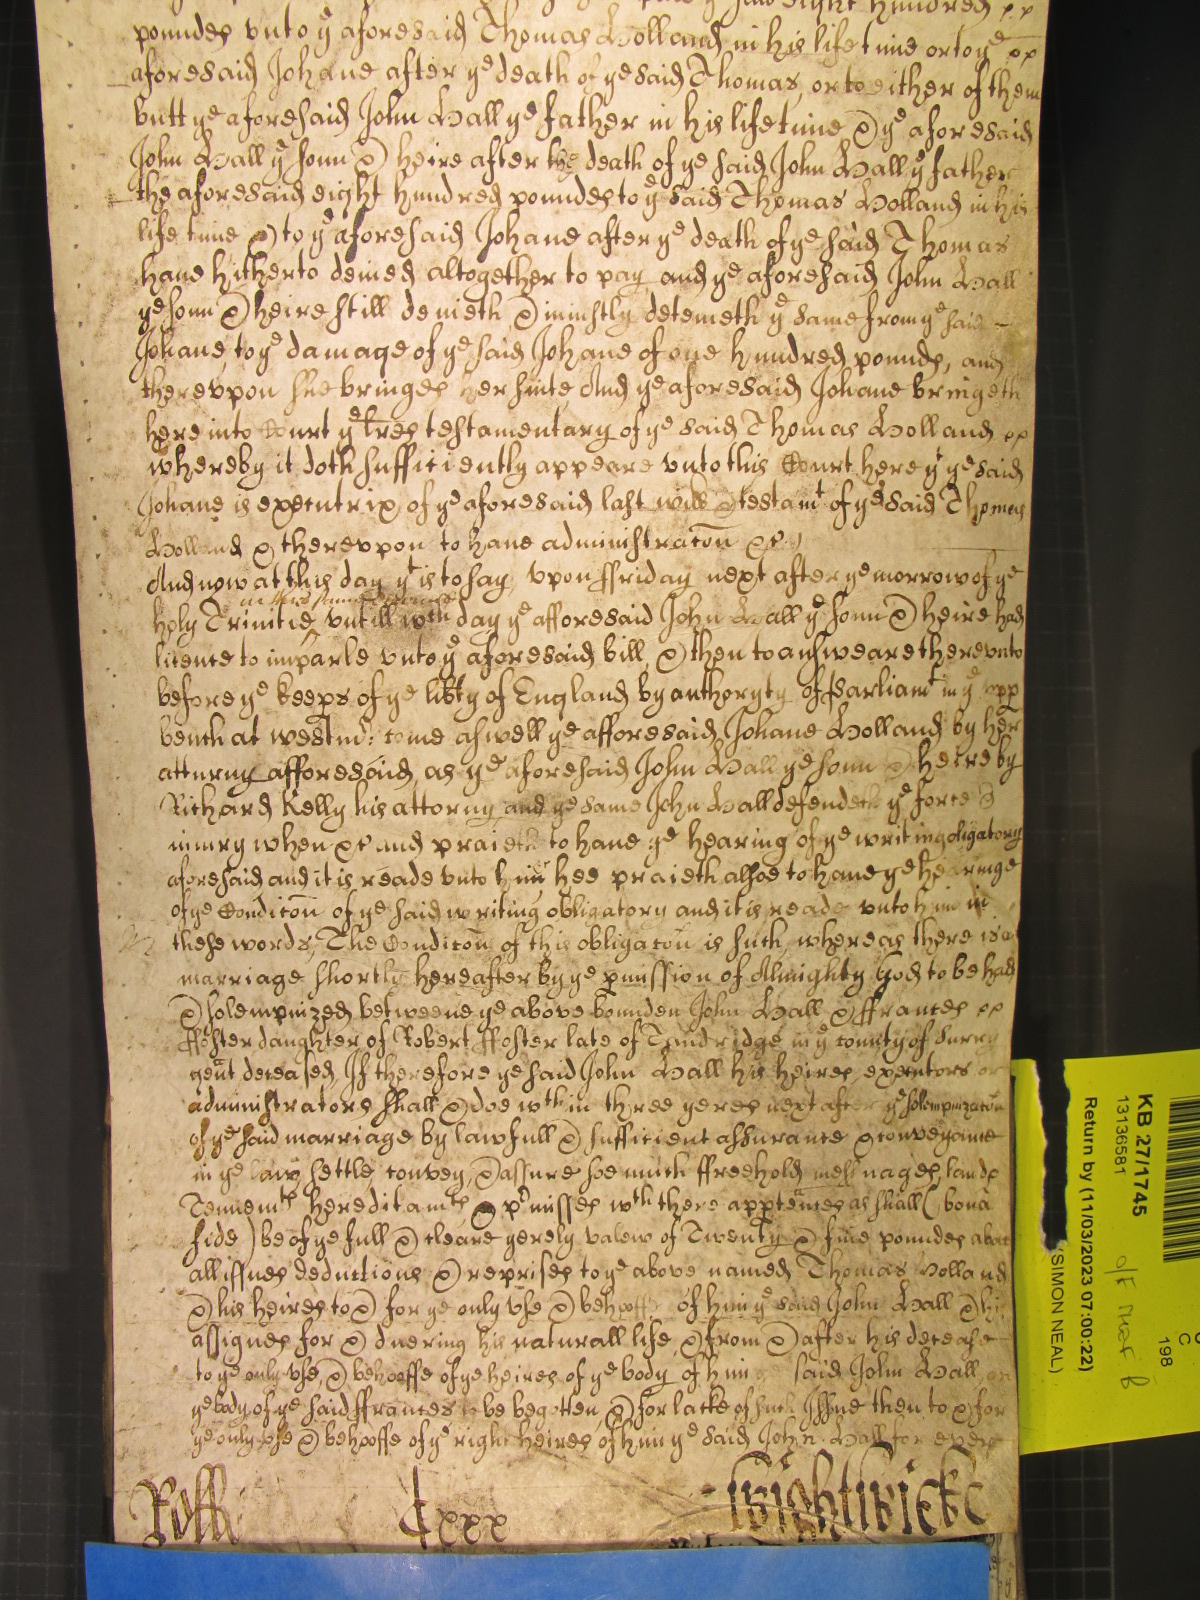 eight hundred
poundes vnto ye aforesaid Thomas Holland in his life time or to ye
aforesaid Johane after ye death of ye said Thomas, or to either of them
butt ye aforesaid John Hall ye father in his life time & ye aforesaid
John Hall ye sonn & heire after the death of ye said John Hall ye father
the aforesaid eight hundred poundes to ye said Thomas Holland in his
life time & to ye aforesaid Johane after ye death of ye said Thomas
haue hitherto denied altogether to pay and ye aforesaid John Hall
ye sonn & heire still denieth & iniustly deteineth ye same from ye said
Johane, to ye damage of ye said Johane of one hundred pounds, and
therevpon shee bringes her suite And ye aforesaid Johane bringeth
here into Court ye lres testamentary of ye said Thomas Holland
whereby it doth sufficiently appeare vnto this Court here yt ye said
Johane is executrix of ye aforesaid last will & testamt of ye said Thomas
Holland & therevpon to haue administracon &c.
And now at this day yt is to say, vpon ffriday next after ye morrow of ye
in this same terme
holy Trinitie vntill wch day ye afforesaid John Hall ye sonn & heire had
licence to imparle vnto ye aforesaid bill, & then to answeare therevnto
before ye keeps of ye libty of England by authoryty of Parliamt in ye upp
bench at westmr: come aswell ye afforesaid Johane Holland by her
atturny afforesaid, as ye aforesaid John Hall ye sonn & heire by
Richard Kelly his attorny and ye same John Hall defendeth ye force &
iniury when &c and praieth to haue ye hearing of ye writing obligatory
aforesaid and it is reade vnto him hee praieth alsoe to haue ye hearinge
of ye Condicon of ye said writing obligatory and it is reade vnto him in
these words, The Condicon of this obligacon is such, whereas there is a
marriage shortly hereafter by ye pmission of Almighty God to be had
& solempnized betweene ye above bounden John Hall & ffrances
ffoster daughter of Robert ffoster late of Tandridge in ye county of Surry
gent deceased, If therefore ye said John Hall his heires, executors or
administrators shall & doe wthin three yeres next after ye solempnizacon
of ye said marriage by lawfull & sufficient assurance & conveyance
in ye law, settle, convey, & assure soe much ffreehold messuages, lands
Tenemts hereditamts & pmisses wth there apptences as shall (bona
fide) be of ye full & cleare yerely valew of Twenty & fiue poundes aboue
all issues deductions & reprises to ye above named Thomas Holland
& his heires to & for ye only vse & behooffe of him ye said John Hall & his
assignes for & dureing his naturall life, & from & after his decease
to ye only vse & behooffe of ye heires of ye body of him said John Hall, on
ye body of ye said ffrances to be begotten & for lacke of such Issue then to & for
ye only vse & behooffe of ye right heires of him ye said John Hall for ever
Rolls Cxxx Wightwicke
KB 27/1745
13136581
Return by (11/03/2023 07:00:22)
(SIMON NEAL)
C
198